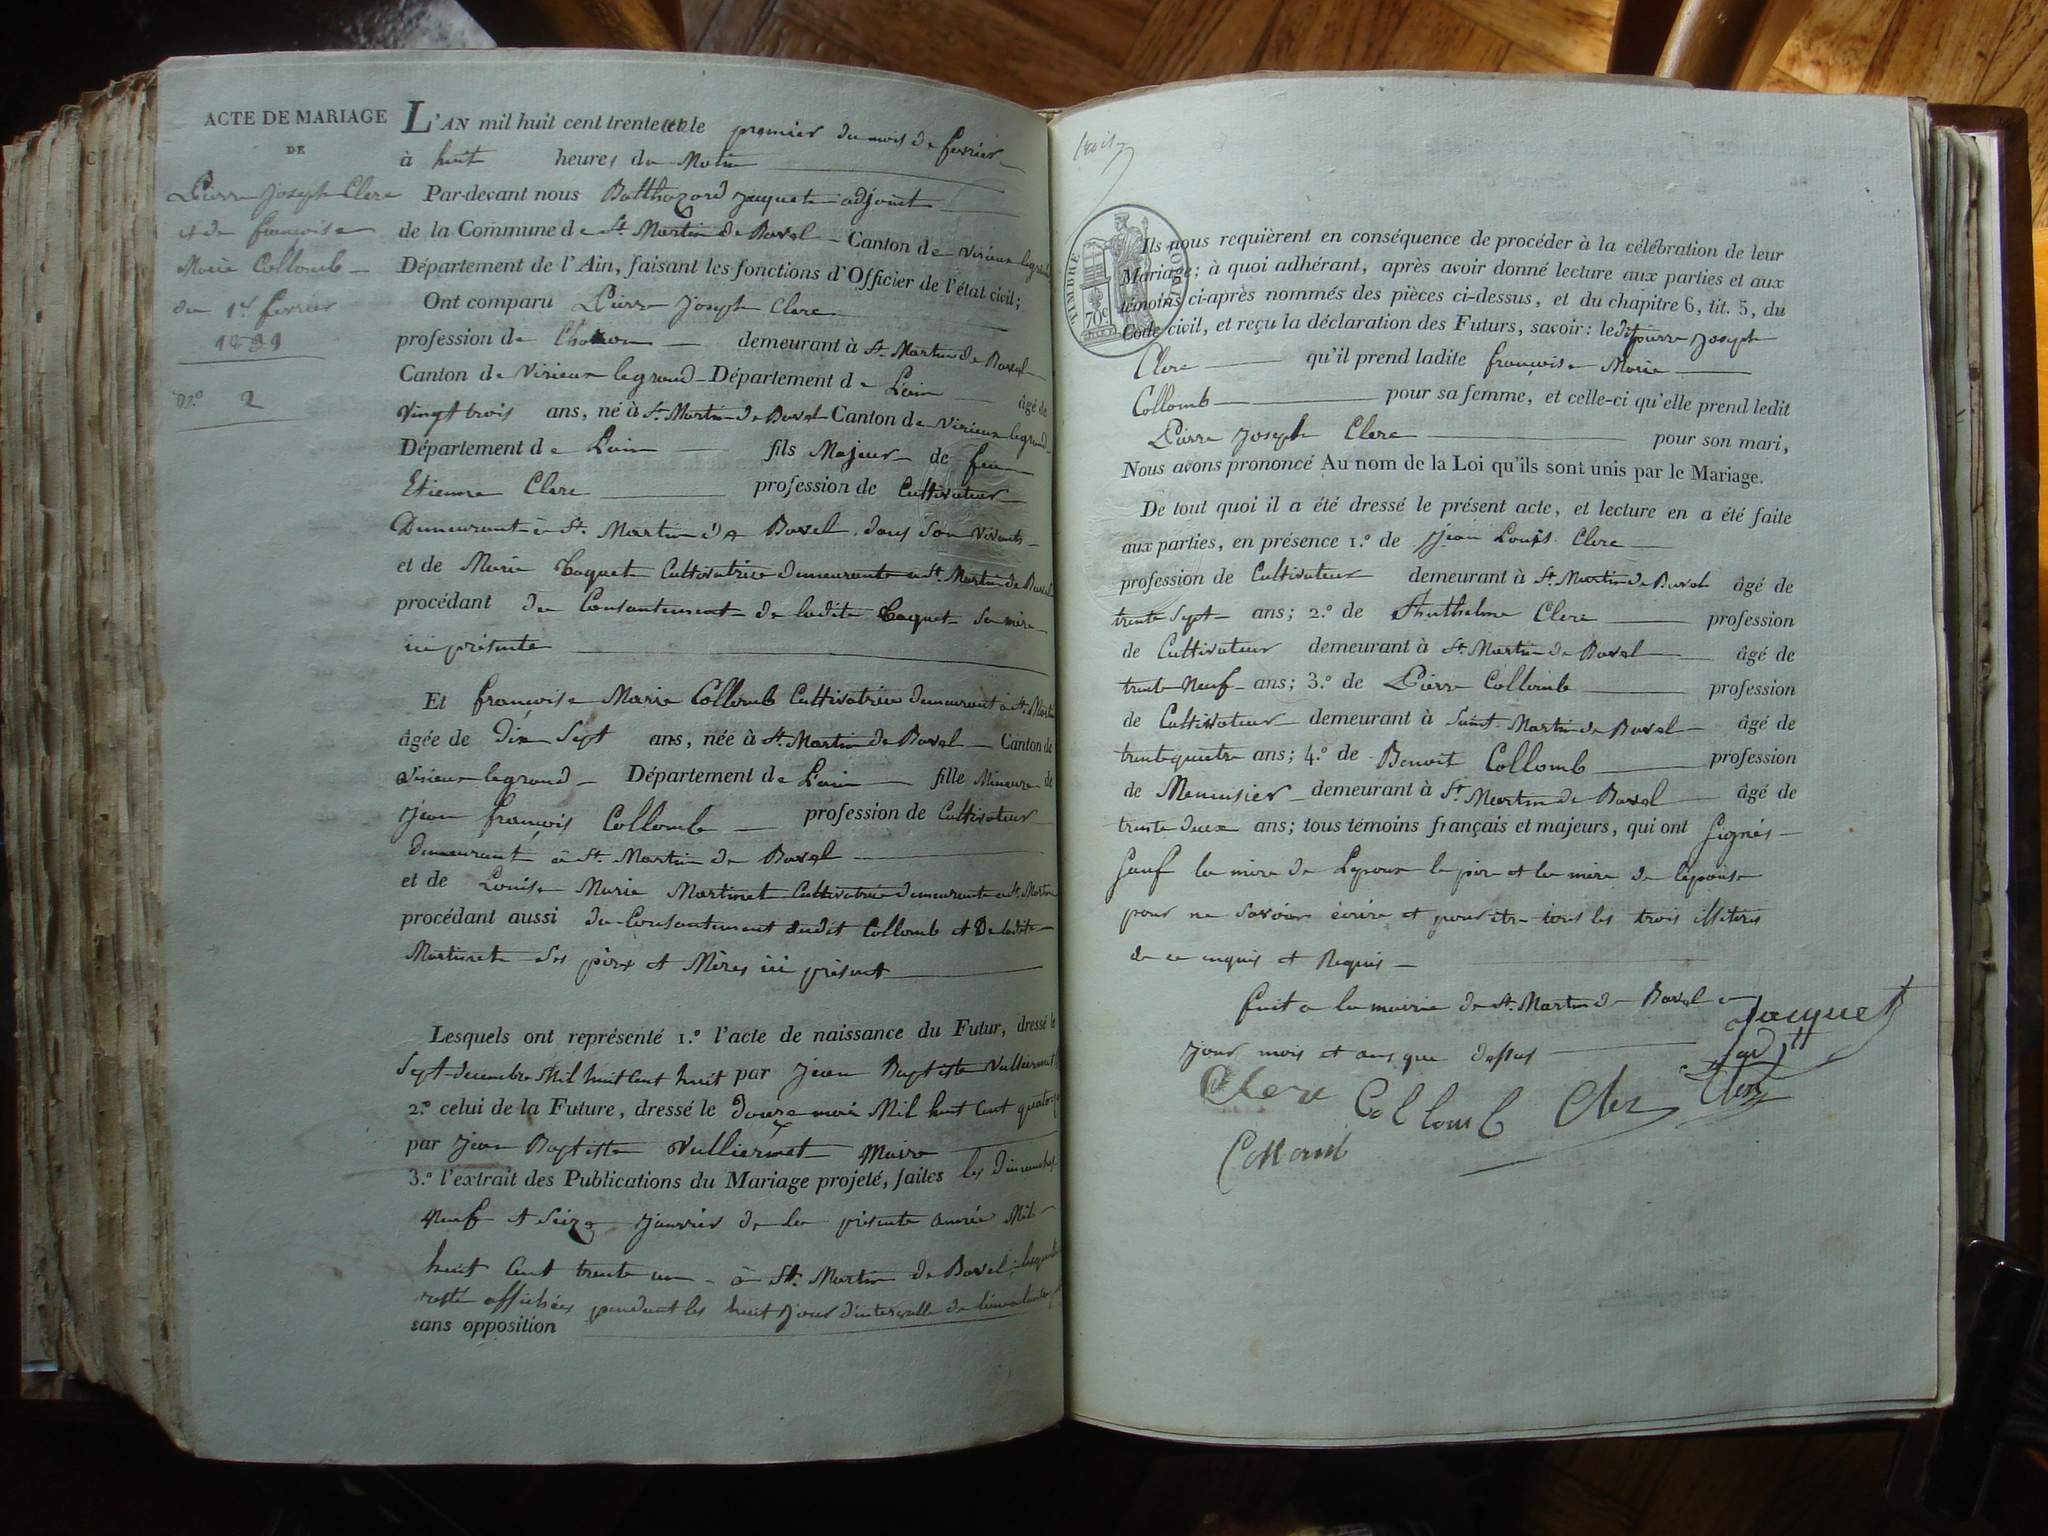 ACTE DE MARIAGE
DE
Pierre Joseph Clerc
et de françoise
Marie Collomb
du 1er fevrier
1831
n.o 2
L'AN mil huit cent trente et le premier du mois de fevrier
à huit heures du Matin
Par-devant nous Balthazard Jaquet adjoint
de la Commune de St. Martin de Bavel Canton de Virieux legrand
Département de l'Ain, faisant les fonctions d'Officier de l'état civil;
Ont comparu Pierre Joseph Clerc
profession de demeurant à St. Martin de Bavel
Canton de Virieux legrand Département de Lain âgé de
vingt trois ans, né à St. Martin de Bavel Canton de Virieux legrand
Département de Lain fils Majeur de feu
Etienne Clerc profession de Cultivateur
Demeurant à St. Martin de Bavel dans son vivant
et de Marie Caquet Cultivatrice demeurante a St. Martin de Bavel
procédant du Consantement de ladite Caquet sa mere
ici présente
Et françoise Marie Collomb Cultivatrice demeurant à St. Martin
âgée de Dix Sept ans, née à St. Martin de Bavel Canton de
Virieux legrand Département de Lain fille Mineure de
Jean françois Collomb profession de Cultivateur
demeurant à St. Martin de Bavel
et de Louise Marie Martinet Cultivatrice demeurante a St. Martin
procédant aussi du Consantement dudit Collomb et De ladite
Martinet ses père et Mères ici présent
Lesquels ont représenté 1.o l'acte de naissance du Futur, dressé le
Sept decembre Mil huit Cent huit par Jean Baptiste Vulliermet
2.o celui de la Future, dressé le Douze mai Mil huit Cent quatorze
par Jean Baptiste Vulliermet Maire
3.o l'extrait des Publications du Mariage projeté, faites les Dimanches
Neuf et Seize Janvier de la présente année Mil
huit Cent trente un à St. Martin de Bavel
resté affichées pendant les huit Jour d'intervalle de
sans opposition
TIMBRE ROYAL
70c
Ils nous requièrent en conséquence de procéder à la célébration de leur
Mariage; à quoi adhérant, après avoir donné lecture aux parties et aux
témoins ci-après nommés des pièces ci-dessus, et du chapitre 6, tit. 5, du
Code civil, et reçu la déclaration des Futurs, savoir: ledit pierre Joseph
Clerc qu'il prend ladite françoise Marie
Collomb pour sa femme, et celle-ci qu'elle prend ledit
Pierre Joseph Clerc pour son mari,
Nous avons prononcé Au nom de la Loi qu'ils sont unis par le Mariage.
De tout quoi il a été dressé le présent acte, et lecture en a été faite
aux parties, en présence 1.o de Jean Louis Clerc
profession de Cultivateur demeurant à St. Martin de Bavel âgé de
trente Sept ans; 2.o de Anthelme Clerc profession
de Cultivateur demeurant à St. Martin de Bavel âgé de
trente Neuf ans; 3.o de Pierre Collomb profession
de Cultivateur demeurant à Saint Martin de Bavel âgé de
trente quatre ans; 4.o de Benoit Collomb profession
de Menuisier demeurant à St. Martin de Bavel âgé de
trente deux ans; tous témoins français et majeurs, qui ont Signés
Sauf la mere de Lepoux le père et la mere de lépouse
pour ne savoir écrire et pour être tous les trois illitérés
de ce enquis et Requis
fait a la mairie de St. Martin de Bavel
Jour mois et ans que dessus
Jacquet
adjt
Clerc Collomb Clerc Clerc
Collomb